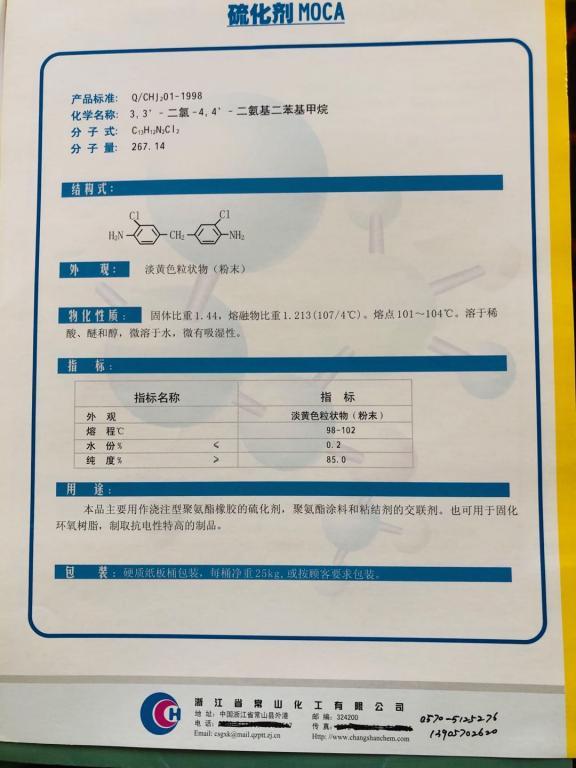 硫化剂MOCA
产品标准: Q/CHJ₂01-1998
化学名称: 3,3'-二氯-4,4'-二氨基二苯基甲烷
分 子 式: C₁₃H₁₂N₂Cl₂
分 子 量: 267.14
结构式:
Cl Cl
H₂N CH₂ NH₂
外 观: 淡黄色粒状物(粉末)
物化性质: 固体比重1.44,熔融物比重1.213(107/4℃)。熔点101～104℃。溶于稀
酸、醚和醇,微溶于水,微有吸湿性。
指 标:
指标名称 指 标
外 观 淡黄色粒状物(粉末)
熔 程℃ 98-102
水 份% ≤ 0.2
纯 度% ≥ 85.0
用 途:
本品主要用作浇注型聚氨酯橡胶的硫化剂,聚氨酯涂料和粘结剂的交联剂。也可用于固化
环氧树脂,制取抗电性特高的制品。
包 装: 硬质纸板桶包装,每桶净重25kg,或按顾客要求包装。
CH
浙江省常山化工有限公司
地 址: 中国浙江省常山县外港 邮 编: 324200
电 话: 传 真:
Email: csgxk@mail.qzptt.zj.cn Http://www.changshanchem.com
0570-5125276
13905702620